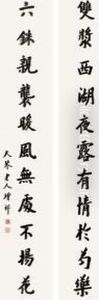 雙漿西湖夜露有情於勺樂
六銖親襲暖風無處不揚花
天琴老人增祥